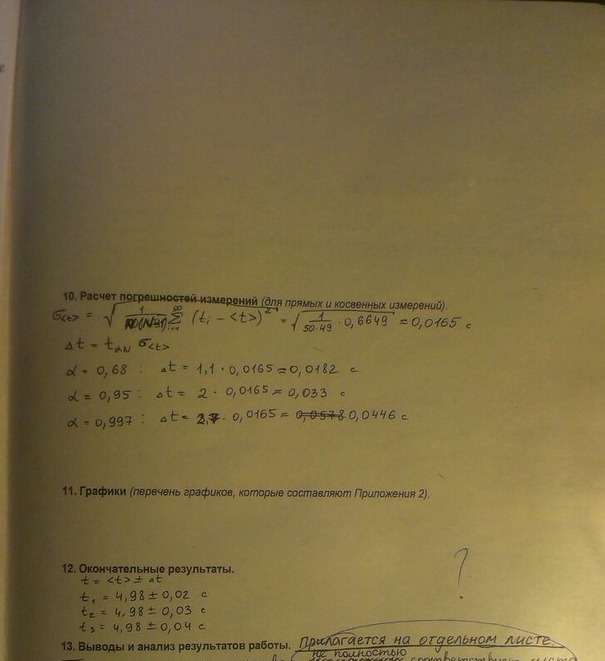 10. Расчет погрешностей измерений (для прямых и косвенных измерений).
σ<t> = √(1/(N(N-1)) Σ (tᵢ - <t>)²) = √(1/(50·49) · 0,6649) = 0,0165 с
Δt = tαN σ<t>
α = 0,68 : Δt = 1,1 · 0,0165 = 0,0182 с
α = 0,95 : Δt = 2 · 0,0165 = 0,033 с
α = 0,997 : Δt = 2,7 · 0,0165 = 0,0578 0,0446 с
11. Графики (перечень графиков, которые составляют Приложения 2).
12. Окончательные результаты.
t = <t> ± Δt
t₁ = 4,98 ± 0,02 с
?
t₂ = 4,98 ± 0,03 с
t₃ = 4,98 ± 0,04 с
13. Выводы и анализ результатов работы. Прилагается на отдельном листе.
не полностью